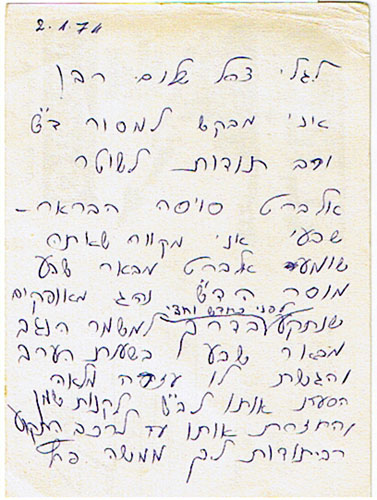 2.1.74
לגלי צהל שלום רבן
אני מבקש למסור ד"ש
ורב תודות לשוטר
אלברט סויסה הבאר-
שבעי אני מקווה שאתה
שומע אלברט מבאר שבע
מוסר הד"ש נהג מאופקים
לפני כחודש וחצי
שנתקע בדרך למשמר הנגב
מבאר שבע בשעת הערב
והגשת לו עזרה מלאה
הסעת אותו לב"ש לקנות שמן
והחזרת אותו עד לרכב התקוע
רב תודות לך ממשה